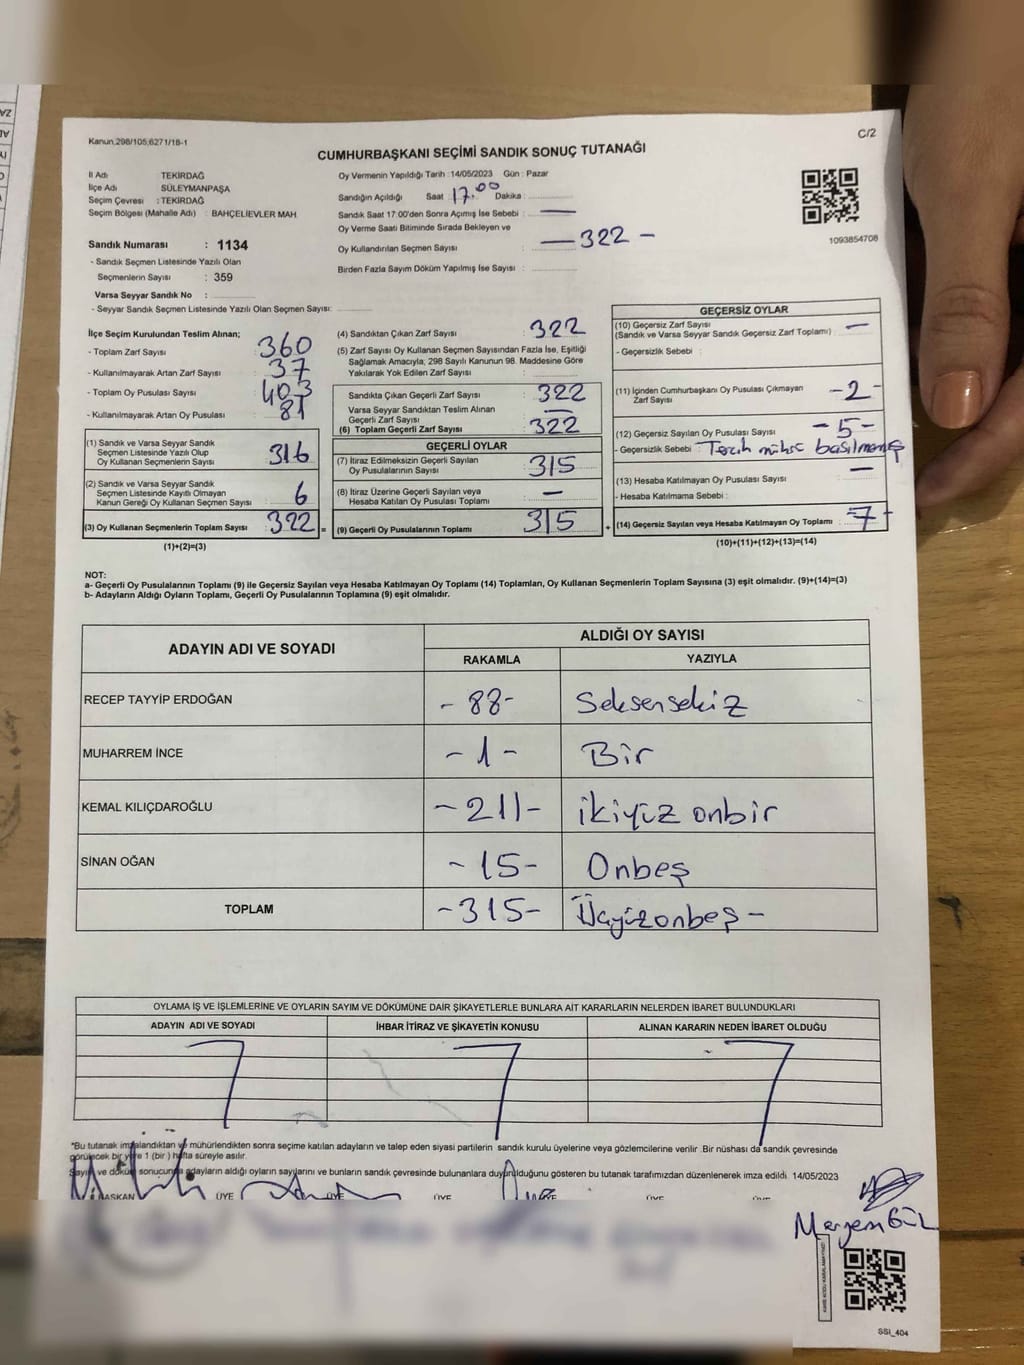 Kanun,298/105,6271/18-1
C/2
CUMHURBAŞKANI SEÇİMİ SANDIK SONUÇ TUTANAĞI
İl Adı TEKİRDAĞ
İlçe Adı SÜLEYMANPAŞA
Seçim Çevresi : TEKİRDAĞ
Seçim Bölgesi (Mahalle Adı) : BAHÇELİEVLER MAH.
Sandık Numarası : 1134
- Sandık Seçmen Listesinde Yazılı Olan
Seçmenlerin Sayısı : 359
Varsa Seyyar Sandık No :
- Seyyar Sandık Seçmen Listesinde Yazılı Olan Seçmen Sayısı:
Oy Vermenin Yapıldığı Tarih : 14/05/2023 Gün : Pazar
Sandığın Açıldığı Saat 17.00 Dakika :
Sandık Saat 17:00'den Sonra Açılmış İse Sebebi : —
Oy Verme Saati Bitiminde Sırada Bekleyen ve
Oy Kullandırılan Seçmen Sayısı : — 322 -
Birden Fazla Sayım Döküm Yapılmış İse Sayısı :
1093854706
İlçe Seçim Kurulundan Teslim Alınan;
- Toplam Zarf Sayısı 360
- Kullanılmayarak Artan Zarf Sayısı 37
- Toplam Oy Pusulası Sayısı 403
- Kullanılmayarak Artan Oy Pusulası 81
(1) Sandık ve Varsa Seyyar Sandık
Seçmen Listesinde Yazılı Olup
Oy Kullanan Seçmenlerin Sayısı 316
(2) Sandık ve Varsa Seyyar Sandık
Seçmen Listesinde Kayıtlı Olmayan
Kanun Gereği Oy Kullanan Seçmen Sayısı 6
(3) Oy Kullanan Seçmenlerin Toplam Sayısı 322 =
(1)+(2)=(3)
(4) Sandıktan Çıkan Zarf Sayısı : 322
(5) Zarf Sayısı Oy Kullanan Seçmen Sayısından Fazla İse, Eşitliği
Sağlamak Amacıyla, 298 Sayılı Kanunun 98. Maddesine Göre
Yakılarak Yok Edilen Zarf Sayısı :
Sandıkta Çıkan Geçerli Zarf Sayısı : 322
Varsa Seyyar Sandıktan Teslim Alınan
Geçerli Zarf Sayısı : —
(6) Toplam Geçerli Zarf Sayısı : 322
GEÇERLİ OYLAR
(7) İtiraz Edilmeksizin Geçerli Sayılan
Oy Pusulalarının Sayısı : 315
(8) İtiraz Üzerine Geçerli Sayılan veya
Hesaba Katılan Oy Pusulası Toplamı : —
(9) Geçerli Oy Pusulalarının Toplamı : 315 +
GEÇERSİZ OYLAR
(10) Geçersiz Zarf Sayısı : —
(Sandık ve Varsa Seyyar Sandık Geçersiz Zarf Toplamı)
- Geçersizlik Sebebi :
(11) İçinden Cumhurbaşkanı Oy Pusulası Çıkmayan
Zarf Sayısı : - 2 -
(12) Geçersiz Sayılan Oy Pusulası Sayısı : - 5 -
- Geçersizlik Sebebi : Tercih mührü basılmamış
(13) Hesaba Katılmayan Oy Pusulası Sayısı : —
- Hesaba Katılmama Sebebi :
(14) Geçersiz Sayılan veya Hesaba Katılmayan Oy Toplamı : - 7 -
(10)+(11)+(12)+(13)=(14)
NOT:
a- Geçerli Oy Pusulalarının Toplamı (9) ile Geçersiz Sayılan veya Hesaba Katılmayan Oy Toplamı (14) Toplamları, Oy Kullanan Seçmenlerin Toplam Sayısına (3) eşit olmalıdır. (9)+(14)=(3)
b- Adayların Aldığı Oyların Toplamı, Geçerli Oy Pusulalarının Toplamına (9) eşit olmalıdır.
ADAYIN ADI VE SOYADI ALDIĞI OY SAYISI
RAKAMLA YAZIYLA
RECEP TAYYİP ERDOĞAN - 88 - Seksensekiz
MUHARREM İNCE - 1 - Bir
KEMAL KILIÇDAROĞLU - 211 - ikiyüz onbir
SİNAN OĞAN - 15 - Onbeş
TOPLAM - 315 - Üçyüzonbeş -
OYLAMA İŞ VE İŞLEMLERİNE VE OYLARIN SAYIM VE DÖKÜMÜNE DAİR ŞİKAYETLERLE BUNLARA AİT KARARLARIN NELERDEN İBARET BULUNDUKLARI
ADAYIN ADI VE SOYADI İHBAR İTİRAZ VE ŞİKAYETİN KONUSU ALINAN KARARIN NEDEN İBARET OLDUĞU
*Bu tutanak imzalandıktan ve mühürlendikten sonra seçime katılan adayların ve talep eden siyasi partilerin sandık kurulu üyelerine veya gözlemcilerine verilir. Bir nüshası da sandık çevresinde
görülecek bir yere 1 (bir) hafta süreyle asılır.
Sayım ve döküm sonucunda adayların aldığı oyların sayılarını ve bunların sandık çevresinde bulunanlara duyurulduğunu gösteren bu tutanak tarafımızdan düzenlenerek imza edildi. 14/05/2023
BAŞKAN ÜYE ÜYE ÜYE ÜYE ÜYE ÜYE
Meryem GÜL
SSI_404